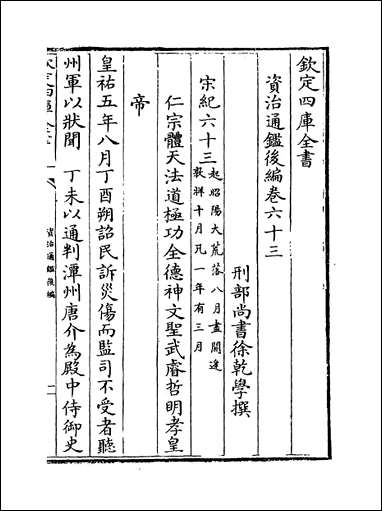 欽定四庫全書
資治通鑑後編卷六十三
刑部尚書徐乾學撰
宋紀六十三起昭陽大荒落八月盡閼逢
敦牂十月凡一年有三月
仁宗體天法道極功全德神文聖武睿哲明孝皇
帝
皇祐五年八月丁酉朔詔民訴災傷而監司不受者聽
州軍以狀聞 丁未以通判潭州唐介為殿中侍御史
資治通鑑後編